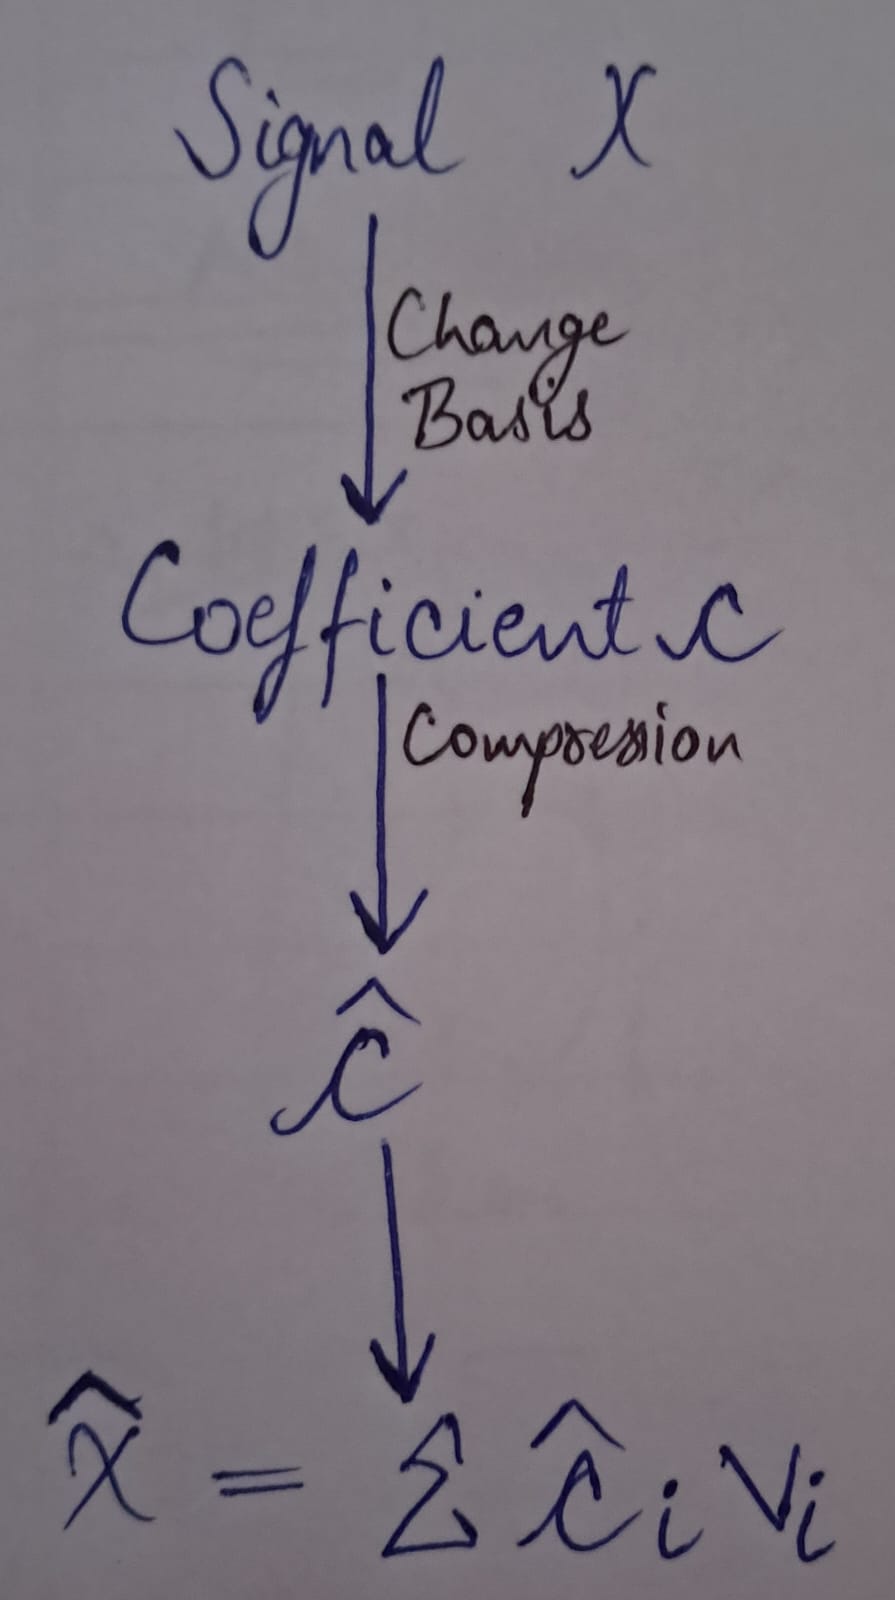 Signal X
Change
Basis
Coefficient c
Compression
ĉ
x̂ = Σ ĉᵢ vᵢ